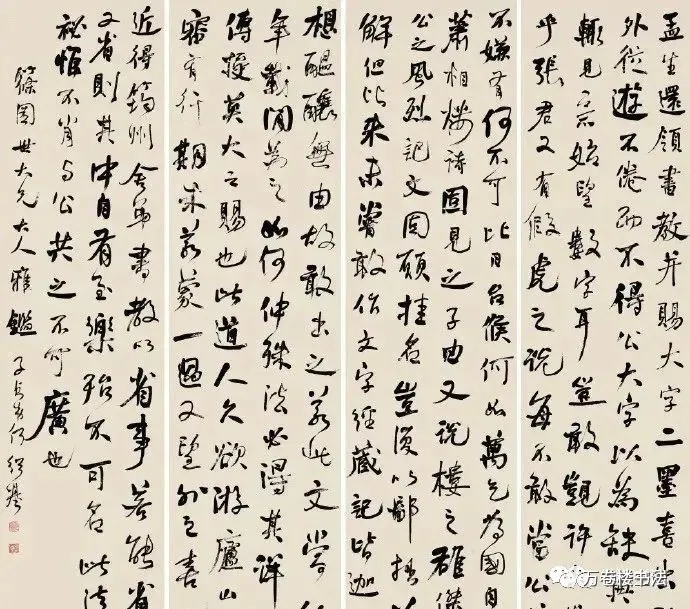 孟生還領書教并賜大字二墨喜出
外從游不倦而不得公大字以為缺典
輒見示始望數字耳豈敢覬許
乎張君又有假虎之說每不敢當公
不嫌有何不可比日台候何如萬乞為國自
蕭相樓詩固見之子由又說樓之雄傑
公之風烈記文固願挂名豈復以鄙拙
解但比來未嘗敢作文字經藏記皆迦
想醞釀無由故敢出之若此文嘗
年對閒為之如何仲殊法必得其詳
傳授莫大之賜也此道人久欲游廬山
審有行期未若蒙一過又望外之喜
近得筠州舍弟書教以省事若能省
又省則其中自有至樂殆不可名此法
祕惟不肖與公共之不可廣也
篠園世大兄大人雅鑑 子貞弟何紹基
万卷楼书法